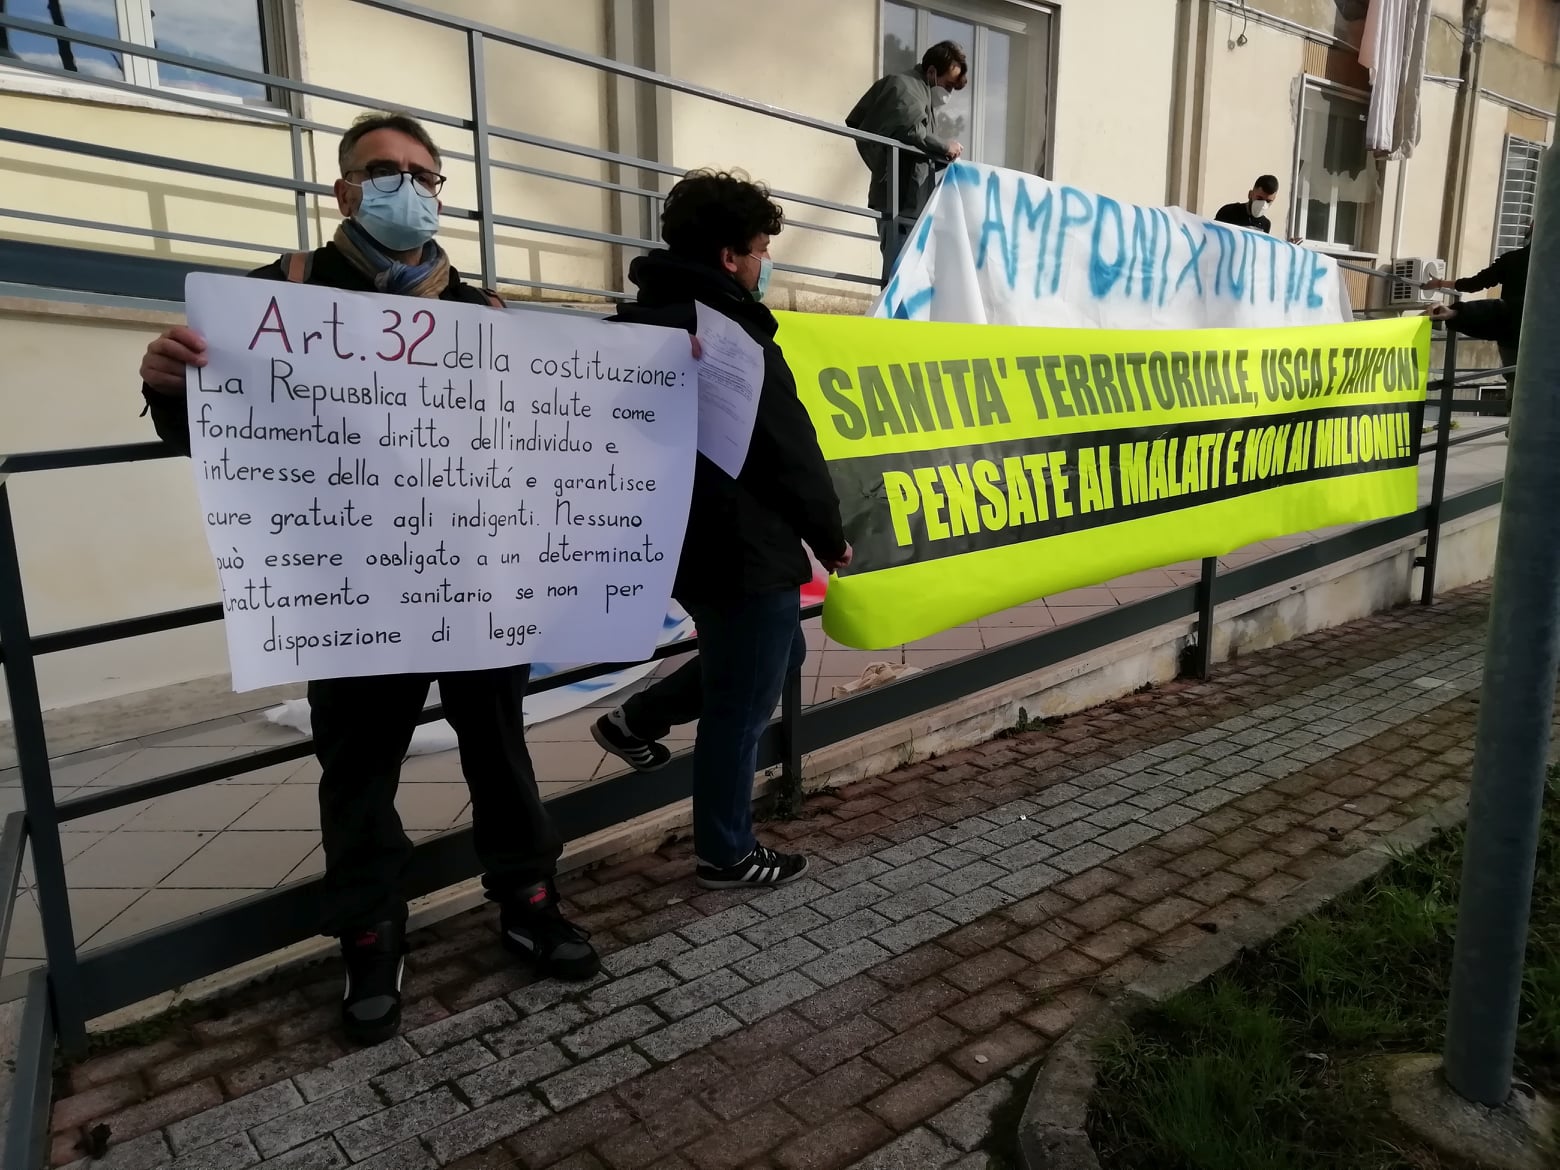 Art. 32 della costituzione:
La Repubblica tutela la salute come
fondamentale diritto dell'individuo e
interesse della collettivitá e garantisce
cure gratuite agli indigenti. Nessuno
può essere obbligato a un determinato
trattamento sanitario se non per
disposizione di legge.
TAMPONI X TUTTI\E
SANITA' TERRITORIALE, USCA E TAMPONI
PENSATE AI MALATI E NON AI MILIONI!!